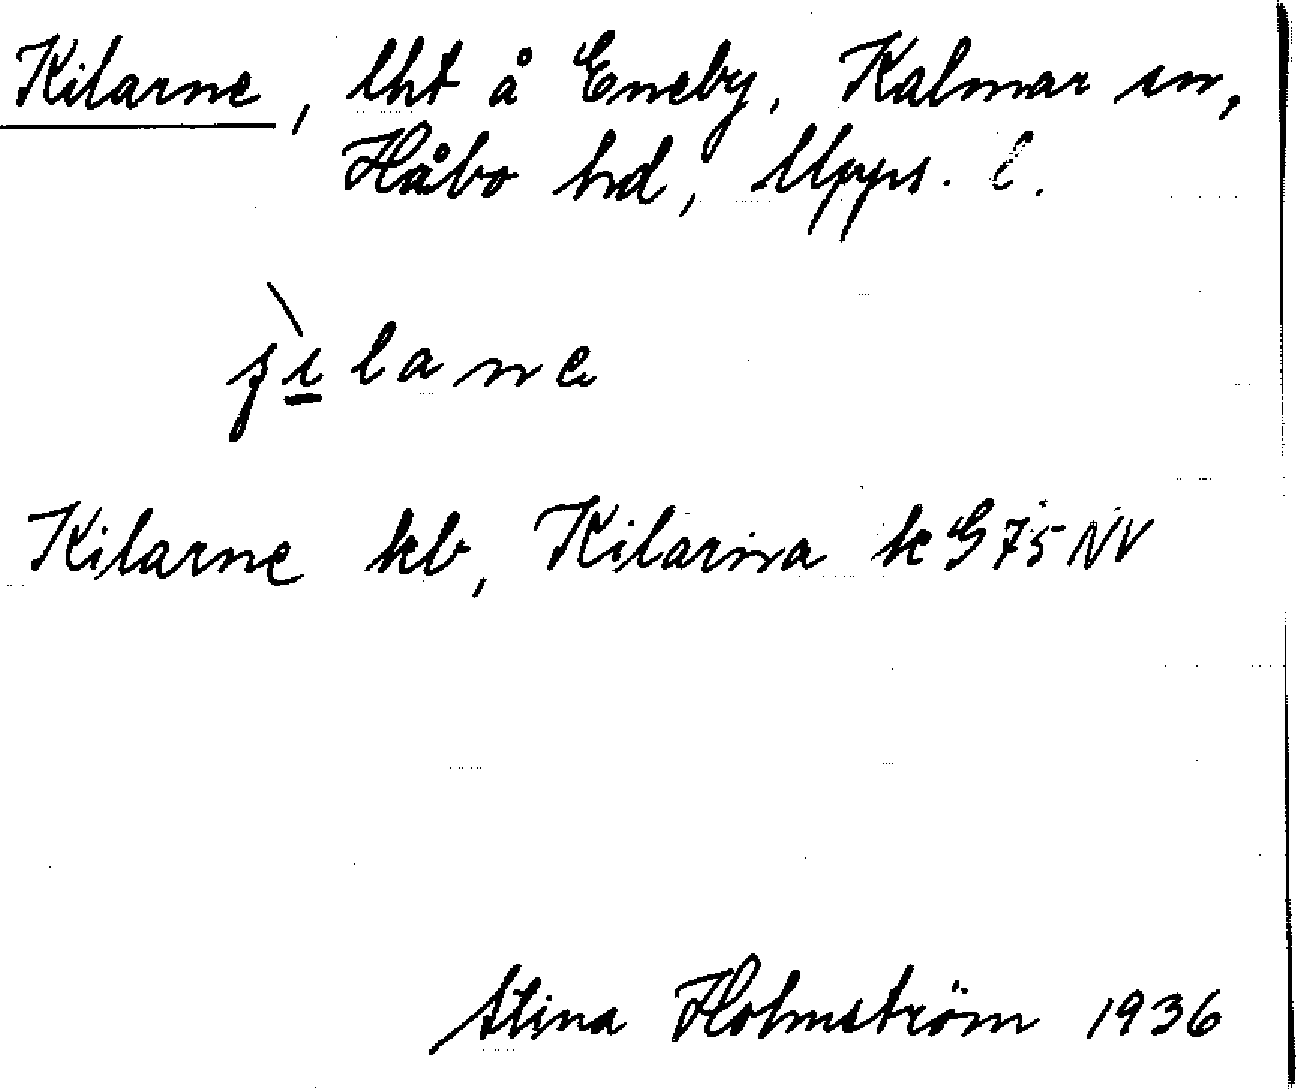 Kilarne, lht å Eneby, Kalmar sn,
Håbo hd, Upps. l.
Kilarne kb, Kilarna k G75NV
Stina Holmström 1936